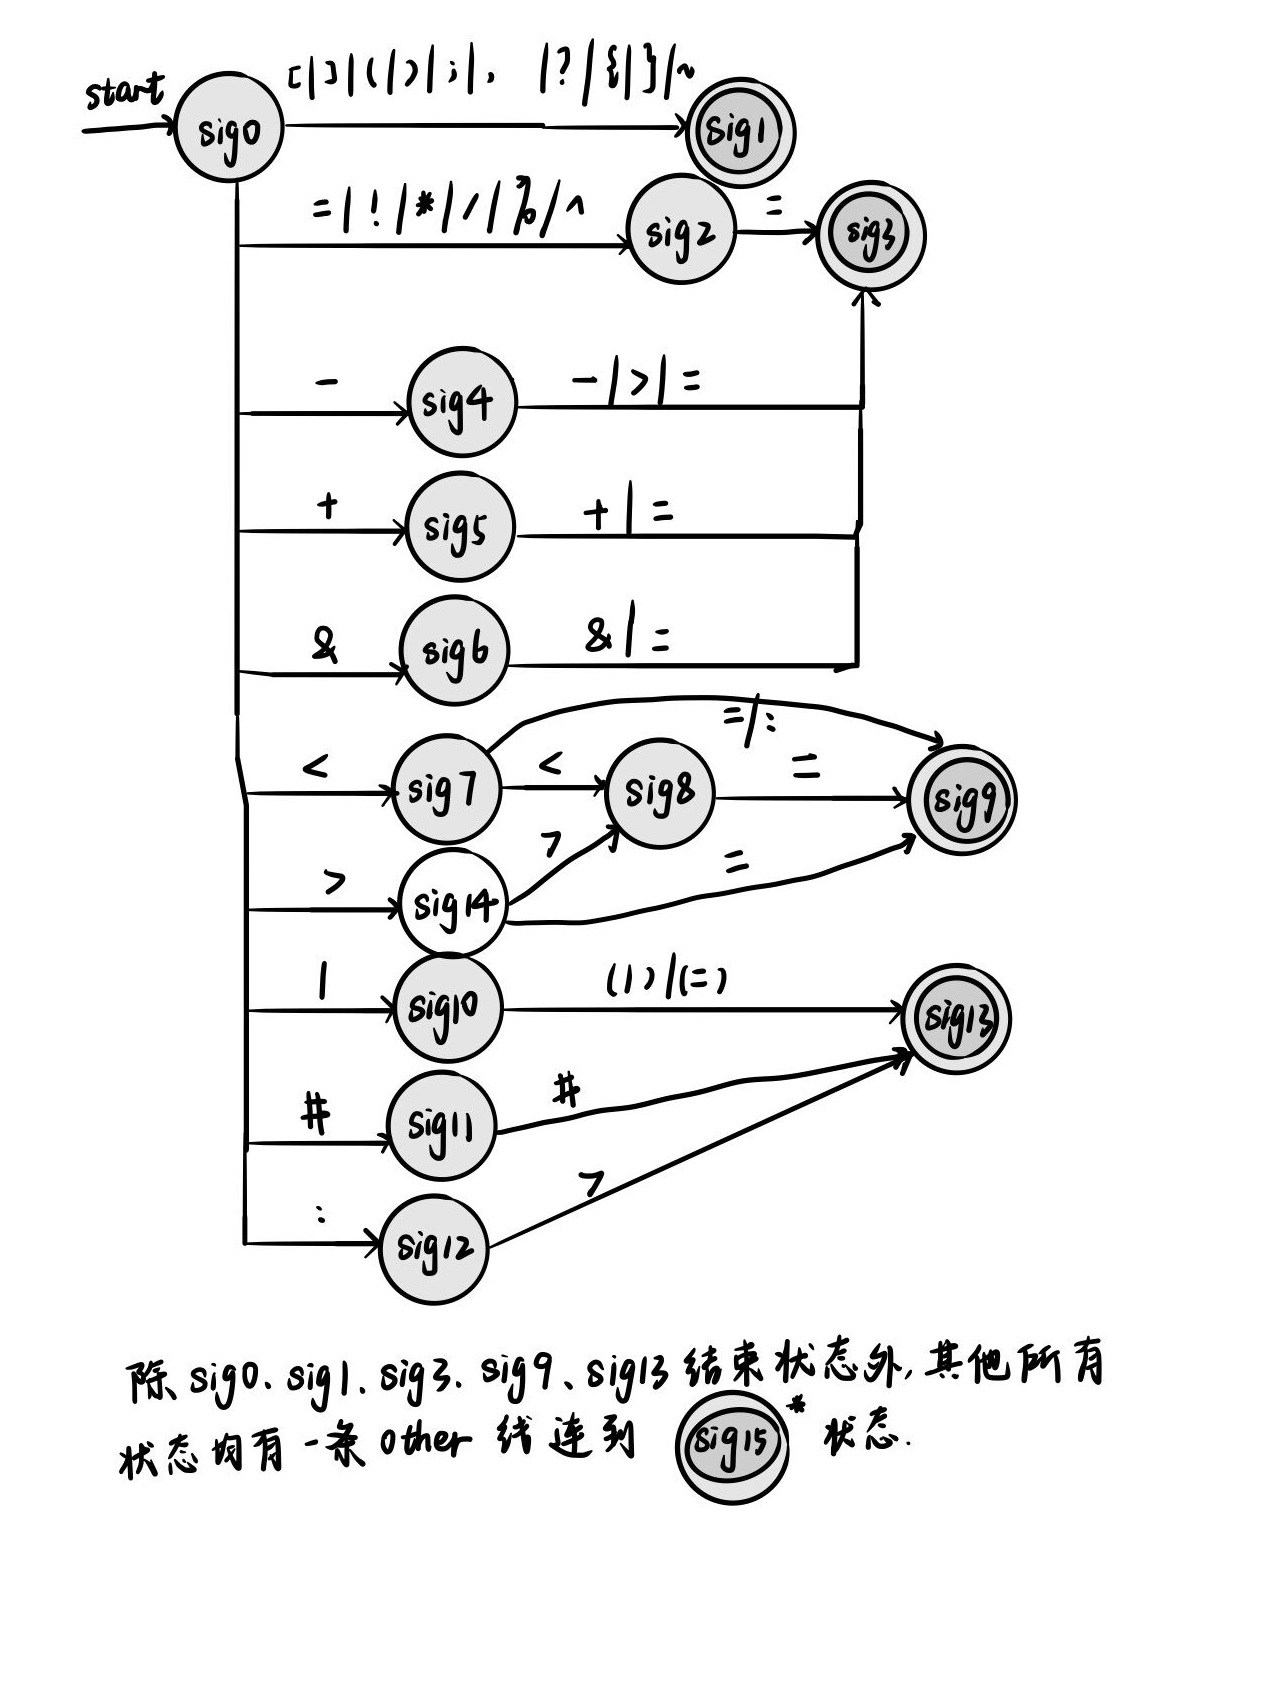 start
sig0
[|]|(|)|;|, |?|{|}|~
sig1
=|!|*|/|%|^
sig2
=
sig3
-
sig4
-|>|=
+
sig5
+|=
&
sig6
&|=
=|:
<
sig7
<
sig8
=
sig9
>
sig14
>
=
|
sig10
(|)|(=)
sig13
#
sig11
#
:
sig12
>
除、sig0、sig1、sig3、sig9、sig13结束状态外,其他所有
状态均有一条other线连到 sig15* 状态.